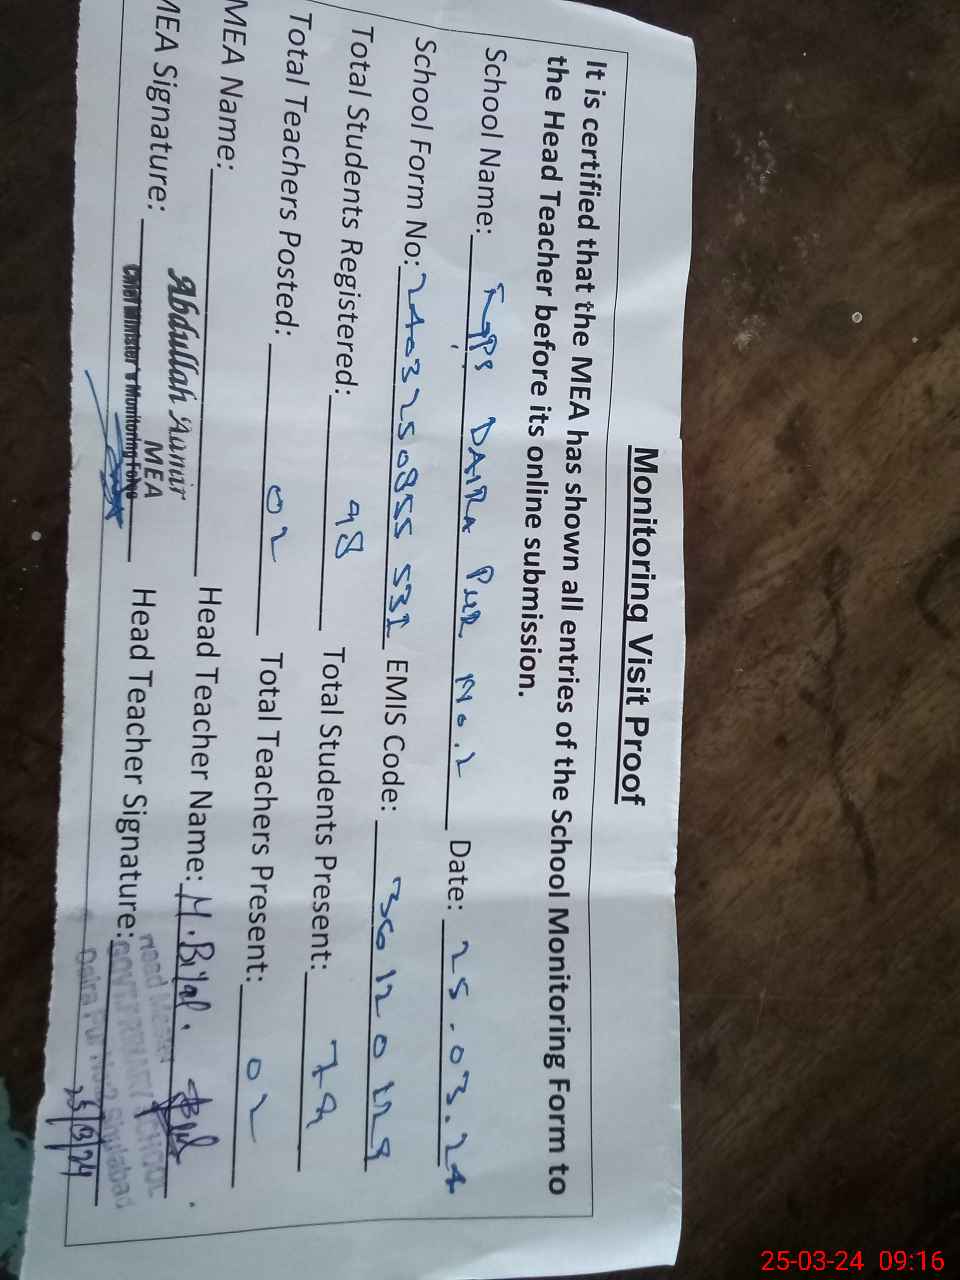 Monitoring Visit Proof
It is certified that the MEA has shown all entries of the School Monitoring Form to
the Head Teacher before its online submission.
School Name: DAIRA PUR No.2 Date: 25.03.24
School Form No: EMIS Code:
Total Students Registered: 98 Total Students Present:
Total Teachers Posted: 02 Total Teachers Present: 02
MEA Name: Abdullah Aamir Head Teacher Name: M. Bilal.
MEA
MEA Signature: Chief Minister's Monitoring Force Head Teacher Signature:
Head Master
GOVT. PRIMARY SCHOOL
Daira Pur No.2
25/3/24
25-03-24 09:16